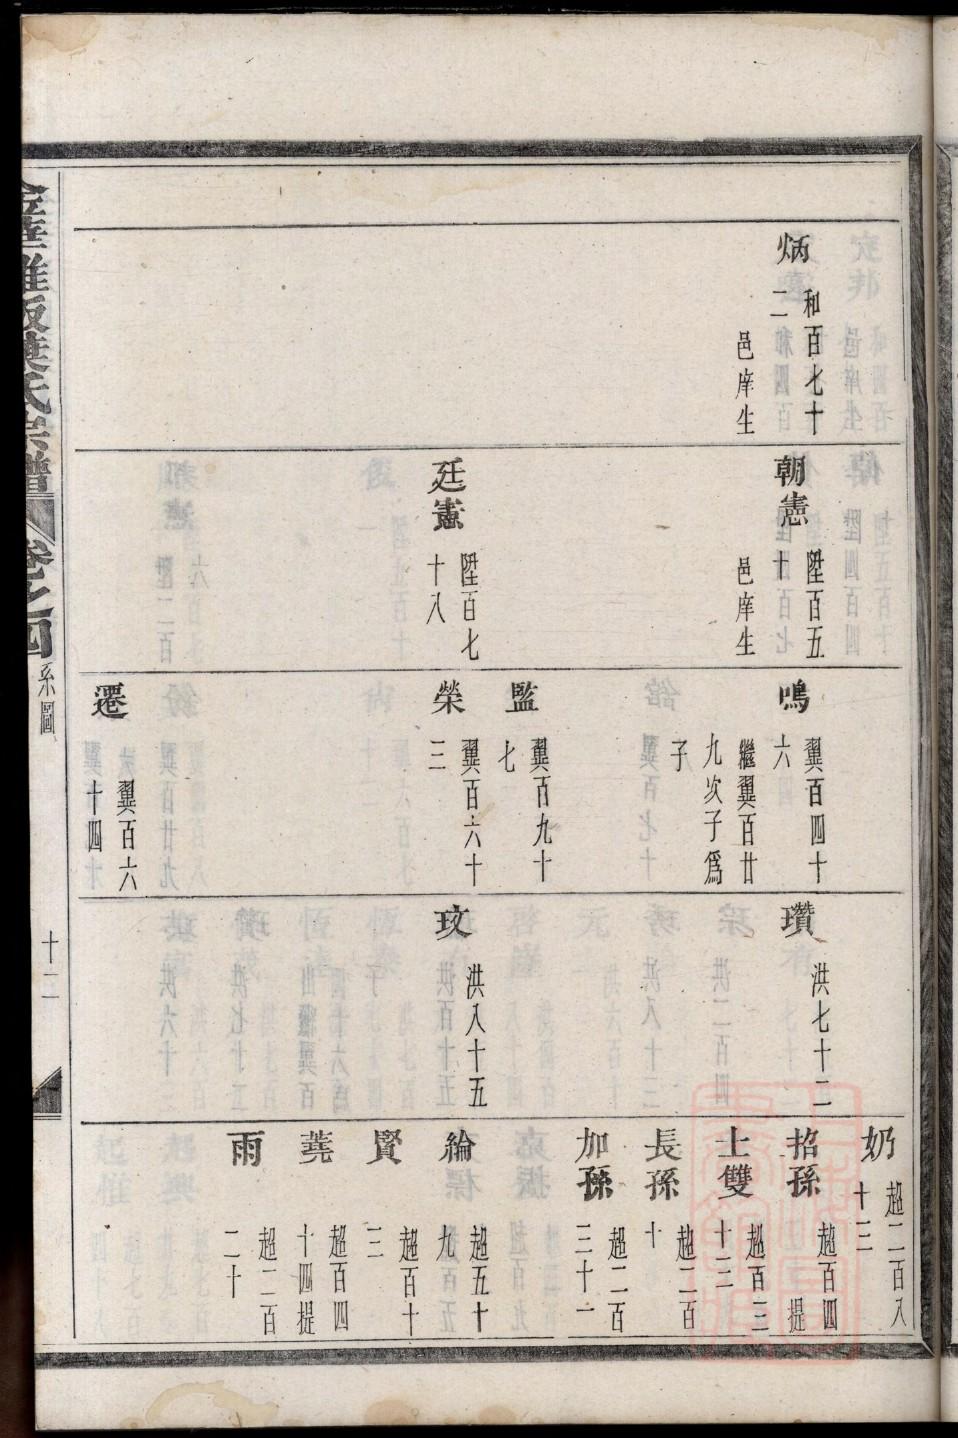 炳
和百七十
二
邑庠生
朝憲
陞百五
十
邑庠生
廷憲
陞百七
十八
鳴
翼百四十
六
繼翼百廿
九次子爲
子
監
翼百九十
七
榮
翼百六十
三
遷
翼百六
十四
瓚
洪七十二
玟
洪八十五
奶
超二百八
十三
招孫
超百四
提
士雙
超百三
十二
長孫
超二百
十
加孫
超二百
三十一
綸
超五十
九
賢
超百十
三
蕘
超百四
十四提
雨
超二百
二十
葉氏宗譜
卷之四
系圖
十二